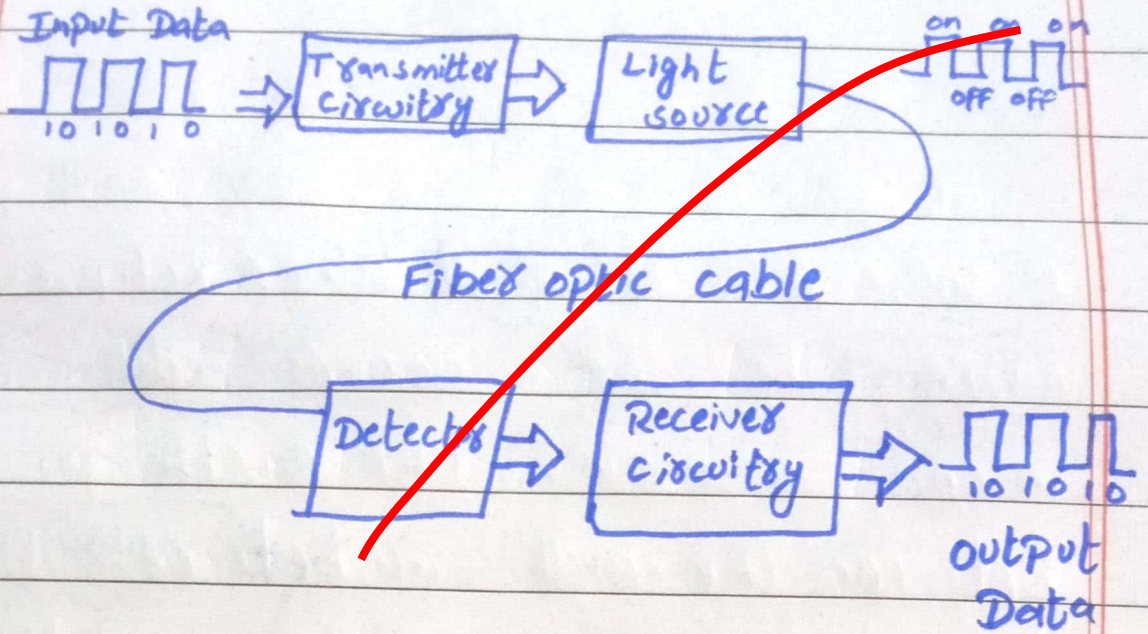 Input Data
10 10 1 0
Transmitter
circuitry
Light
source
on on on
off off
Fiber optic cable
Detector
Receiver
circuitry
10 10 10
output
Data